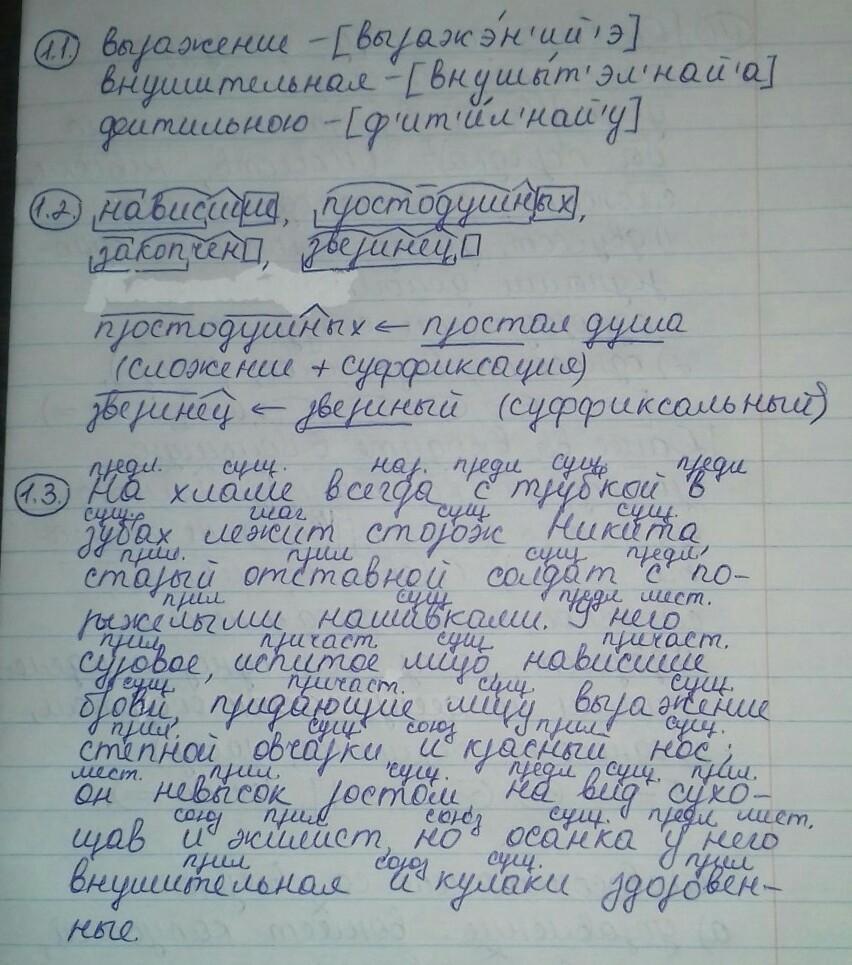 1.1. выражение – [выражэ́н'ий'э]
внушительная – [внушы́т'эл'най'а]
фитильною – [ф'ит'и́л'най'у]
1.2. нависшие, простодушных,
закопчен, зверинец
простодушных ← простая душа
(сложение + суффиксация)
зверинец ← звериный (суффиксальный)
предл. сущ. нар. предл сущ. предл
1.3. На хламе всегда с трубкой в
сущ. глаг сущ сущ.
зубах лежит сторож Никита
прил. прил сущ предл.
старый отставной солдат с по-
прил сущ предл мест.
рыжелыми нашивками. У него
прил причаст. сущ причаст.
суровое, испитое лицо, нависшие
сущ. причаст. сущ. сущ.
брови, придающие лицу выражение
прил. сущ союз прил. сущ.
степной овчарки, и красный нос;
мест. прил. сущ. предл сущ. прил.
он невысок ростом, на вид сухо-
союз прил союз сущ. предл мест.
щав и жилист, но осанка у него
прил союз сущ. прил
внушительная и кулаки здоровен-
ные.